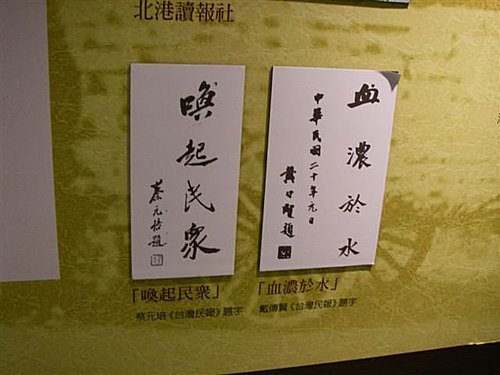 北港讀報社
喚起民衆
蔡元培題
血濃於水
中華民國二十年元日
題
「喚起民衆」
蔡元培《台灣民報》題字
「血濃於水」
戴傳賢《台灣民報》題字